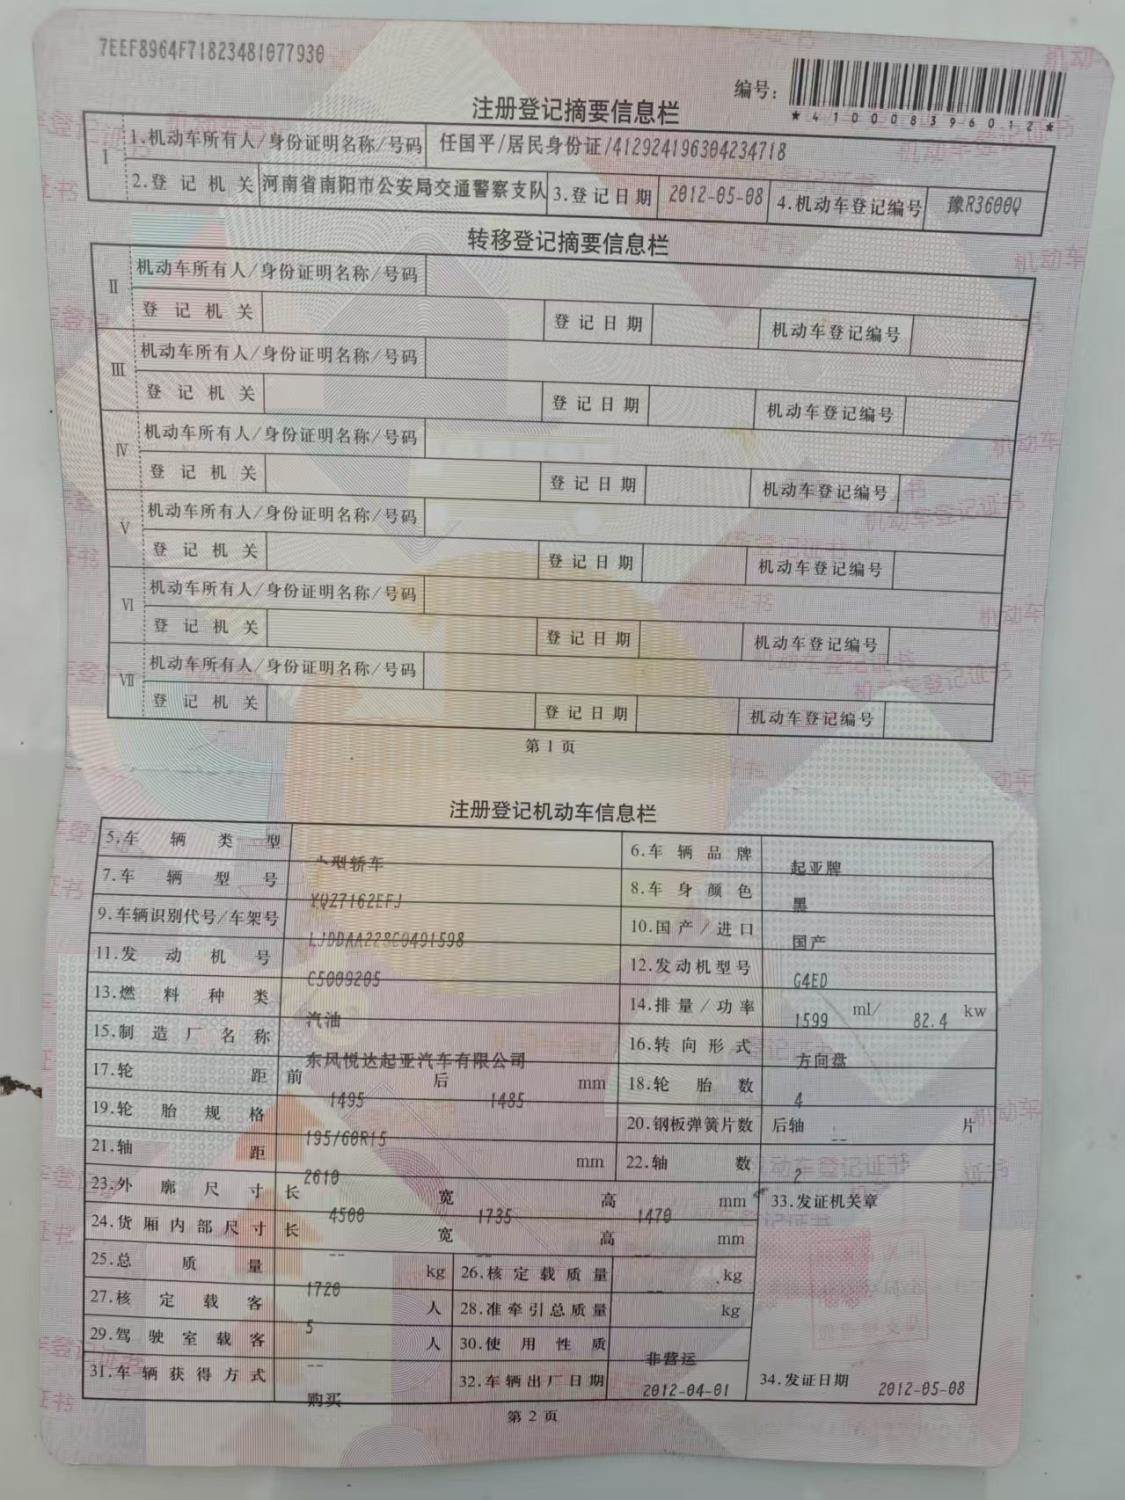 7EEF8964F71823481077930
编号:
*410008396012*
注册登记摘要信息栏
I 1.机动车所有人/身份证明名称/号码 任国平/居民身份证/412924196304234718
2.登记机关 河南省南阳市公安局交通警察支队 3.登记日期 2012-05-08 4.机动车登记编号 豫R3600Q
转移登记摘要信息栏
II 机动车所有人/身份证明名称/号码
登记机关 登记日期 机动车登记编号
III 机动车所有人/身份证明名称/号码
登记机关 登记日期 机动车登记编号
IV 机动车所有人/身份证明名称/号码
登记机关 登记日期 机动车登记编号
V 机动车所有人/身份证明名称/号码
登记机关 登记日期 机动车登记编号
VI 机动车所有人/身份证明名称/号码
登记机关 登记日期 机动车登记编号
VII 机动车所有人/身份证明名称/号码
登记机关 登记日期 机动车登记编号
第1页
注册登记机动车信息栏
5.车辆类型 小型轿车 6.车辆品牌 起亚牌
7.车辆型号 YQZ7162EFJ 8.车身颜色 黑
9.车辆识别代号/车架号 10.国产/进口 国产
11.发动机号 C5009205 12.发动机型号 G4ED
13.燃料种类 汽油 14.排量/功率 1599 ml/ 82.4 kw
15.制造厂名称 东风悦达起亚汽车有限公司 16.转向形式 方向盘
17.轮距 前 1495 后 1485 mm 18.轮胎数 4
19.轮胎规格 195/60R15 20.钢板弹簧片数 后轴 -- 片
21.轴距 2610 mm 22.轴数 2
23.外廓尺寸 长 4500 宽 1735 高 1470 mm 33.发证机关章
24.货厢内部尺寸 长 -- 宽 -- 高 -- mm
25.总质量 1720 kg 26.核定载质量 -- kg
27.核定载客 5 人 28.准牵引总质量 kg
29.驾驶室载客 -- 人 30.使用性质 非营运
31.车辆获得方式 购买 32.车辆出厂日期 2012-04-01 34.发证日期 2012-05-08
第2页